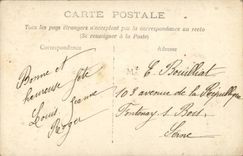 CARTE POSTALE
Tous les pays étrangers n'acceptent pas la correspondance au recto
(Se renseigner à la Poste)
Correspondance
Adresse
Bonne et
heureuse fête
Louis Jeanne
Roger
Mr E. Bouilliat
108 avenue de la République
Fontenay s Bois
Seine